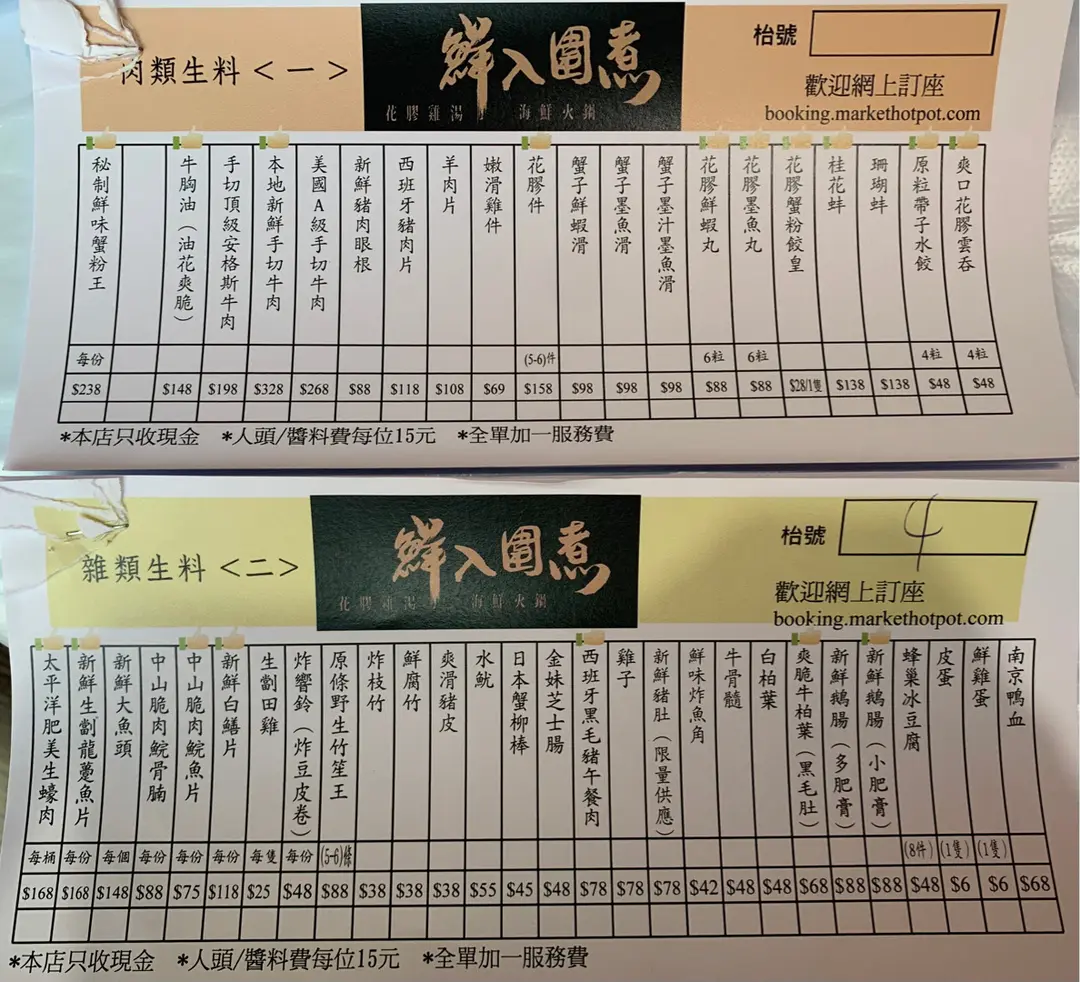 肉類生料<一>
鮮入圍煮
花膠雞湯
海鮮火鍋
枱號
歡迎網上訂座
booking.markethotpot.com
秘制鮮味蟹粉王
牛胸油（油花爽脆）
手切頂級安格斯牛肉
本地新鮮手切牛肉
美國A級手切牛肉
新鮮豬肉眼根
西班牙豬肉片
羊肉片
嫩滑雞件
花膠件
蟹子鮮蝦滑
蟹子墨魚滑
蟹子墨汁墨魚滑
花膠鮮蝦丸
花膠墨魚丸
花膠蟹粉餃皇
桂花蚌
珊瑚蚌
原粒帶子水餃
爽口花膠雲吞
每份 (5-6)件 6粒 6粒 4粒 4粒
$238 $148 $198 $328 $268 $88 $118 $108 $69 $158 $98 $98 $98 $88 $88 $28/1隻 $138 $138 $48 $48
*本店只收現金 *人頭/醬料費每位15元 *全單加一服務費
雜類生料<二>
鮮入圍煮
花膠雞湯
海鮮火鍋
枱號 4
歡迎網上訂座
booking.markethotpot.com
太平洋肥美生蠔肉
新鮮生劏龍躉魚片
新鮮大魚頭
中山脆肉鯇骨腩
中山脆肉鯇魚片
新鮮白鱔片
生劏田雞
炸響鈴（炸豆皮卷）
原條野生竹笙王
炸枝竹
鮮腐竹
爽滑豬皮
水魷
日本蟹柳棒
金妹芝士腸
西班牙黑毛豬午餐肉
雞子
新鮮豬肚（限量供應）
鮮味炸魚角
牛骨髓
白柏葉
爽脆牛柏葉（黑毛肚）
新鮮鵝腸（多肥膏）
新鮮鵝腸（小肥膏）
蜂巢冰豆腐
皮蛋
鮮雞蛋
南京鴨血
每桶 每份 每個 每份 每份 每份 每隻 每份 (5-6)條 (8件) (1隻) (1隻)
$168 $168 $148 $88 $75 $118 $25 $48 $88 $38 $38 $38 $55 $45 $48 $78 $78 $78 $42 $48 $48 $68 $88 $88 $48 $6 $6 $68
*本店只收現金 *人頭/醬料費每位15元 *全單加一服務費